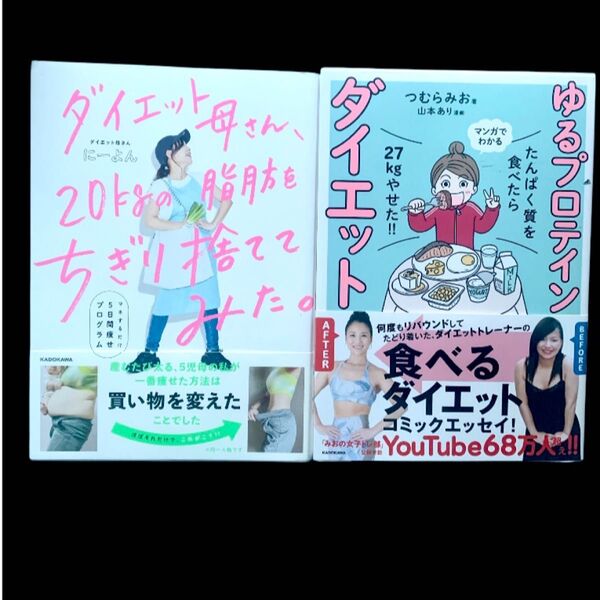 ダイエット母さん、
ダイエット母さん
にーよん
20kgの脂肪を
ちぎり捨てて
みた。
マネするだけ
5日間痩せ
プログラム
KADOKAWA
産むたび太る、5児母の私が
一番痩せた方法は
買い物を変えた
ことでした
つむらみお 著
山本あり 漫画
マンガで
わかる
ゆるプロテイン
ダイエット
たんぱく質を
食べたら
27kgやせた!!
MILK
YOGURT
AFTER
BEFORE
何度もリバウンドして
たどり着いた、ダイエットトレーナーの
食べる
ダイエット
コミックエッセイ!
「みおの女子トレ部」
YouTube68万人超え!!
KADOKAWA